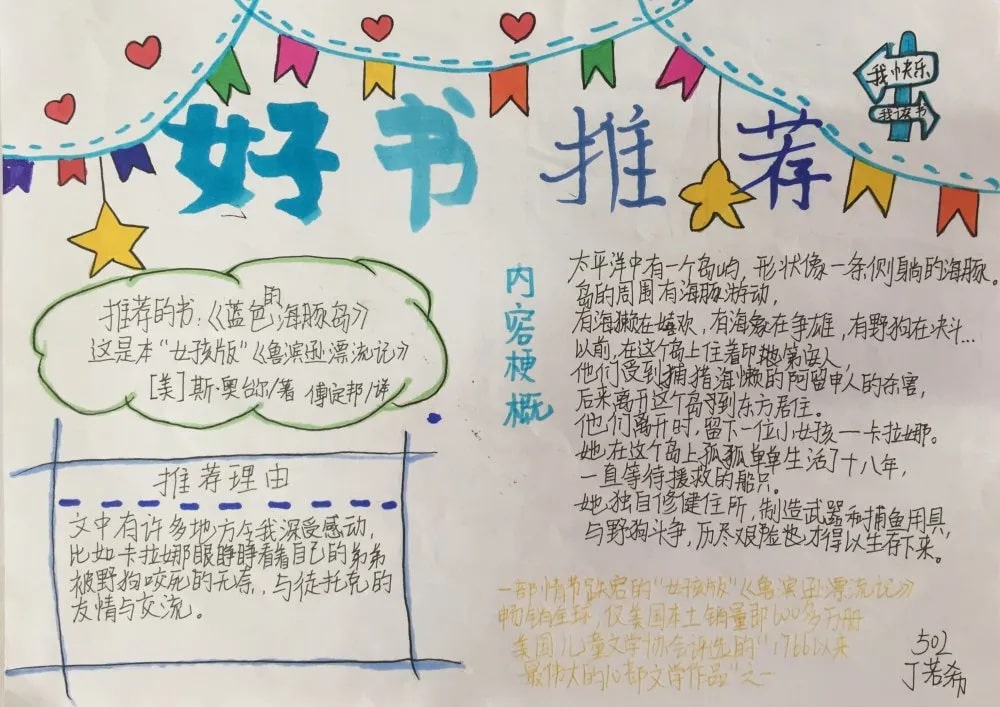 好书推荐
我快乐
我读书
推荐的书：《蓝色的海豚岛》
这是本“女孩版”《鲁滨逊漂流记》
[美]斯·奥台尔/著 傅定邦/译
推荐理由
文中有许多地方令我深受感动，
比如卡拉娜眼睁睁看着自己的弟弟
被野狗咬死的无奈，与徒扎克的
友情与交流。
内容梗概
太平洋中有一个岛屿，形状像一条侧躺的海豚。
岛的周围有海豚游动，
有海獭在嬉欢，有海象在争雄，有野狗在决斗...
以前，在这个岛上住着印地第安人，
他们受到捕猎海懒的阿留申人的杀害，
后来离开这个岛到东方居住。
他们离开时，留下一位小女孩一卡拉娜。
她在这个岛上孤孤单单生活了十八年，
一直等待援救的船只。
她独自修健住所，制造武器和捕鱼用具，
与野狗斗争，历尽艰险也才得以生存下来。
一部情节跌宕的“女孩版”《鲁滨逊漂流记》
畅销全球，仅美国本土销量即600多万册
美国儿童文学协会评选的“1766以来
最伟大的10部文学作品”之一
502
丁若希